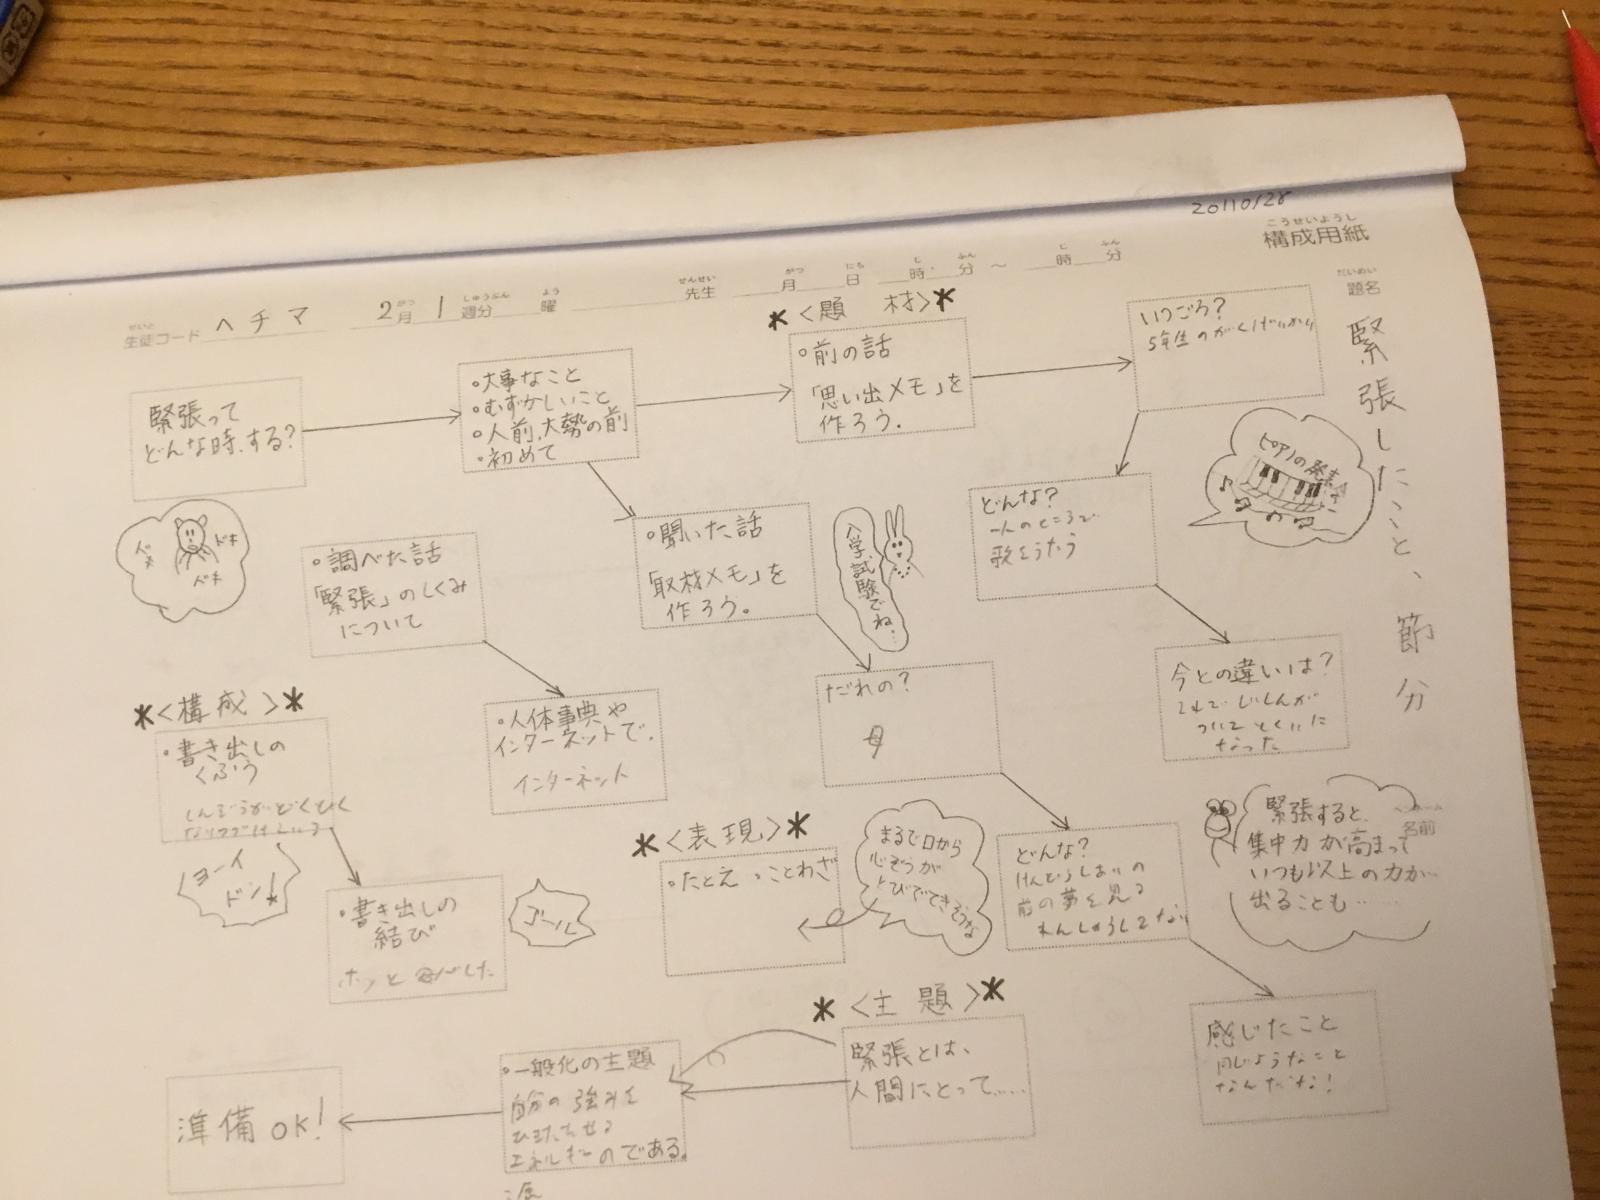 20110128
構成用紙
こうせいようし
生徒コード ヘチマ 2月 1週分 曜 先生 月 日 時 分 ～ 時 分
せいと がつ しゅうぶん よう せんせい がつ にち じ ふん じ ふん
題名
だいめい
緊張したこと、節分
緊張って
どんな時、する?
ドキ
ドキ
ドキ
・大事なこと
・むずかしいこと
・人前、大勢の前
・初めて
*<題 材>*
・前の話
「思い出メモ」を
作ろう。
いつごろ?
5年生のがくげいかい
ピアノの発表
どんな?
一人のところで
歌をうたう
今との違いは?
これでじしんが
ついてとくいに
なった
・聞いた話
「取材メモ」を
作ろう。
入学試験でね…
だれの?
母
どんな?
けんどうしあいの
前の夢を見る
れんしゅうしてない
感じたこと
同じようなこと
なんだな!
・調べた話
「緊張」のしくみ
について
・人体事典や
インターネットで。
インターネット
緊張すると、
集中力が高まって
いつも以上の力が
出ることも……
名前
*<構成>*
・書き出しの
くふう
しんぞうがどくどく
ヨーイ
ドン!
・書き出しの
結び
ホッと
ゴール
*<表現>*
・たとえ・ことわざ
まるで口から
心ぞうが
とびでてきそうな
*<主題>*
緊張とは、
人間にとって……
・一般化の主題
自分の強みを
ひきたたせる
エネルギーのである。
準備OK!